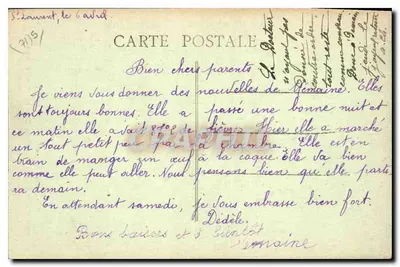 St Laurent, le 6 avril
7/15)
CARTE POSTALE
Bien chers parents
Je viens vous donner des nouvelles de Germaine. Elles
sont toujours bonnes. Elle a passé une bonne nuit et
ce matin elle avait de fièvre. Hier elle a marché
un tout petit peu chambre. Elle est en
train de manger un œuf à la coque Elle va bien
comme elle peut aller. Nous pensons bien qu'elle parti
ra demain.
En attendant samedi, je vous embrasse bien fort.
Dédèle.
Bons baisers et à bientôt
Germaine
Le Docteur
n'ayant pas
contre-ordre
tout reste
comme convenu